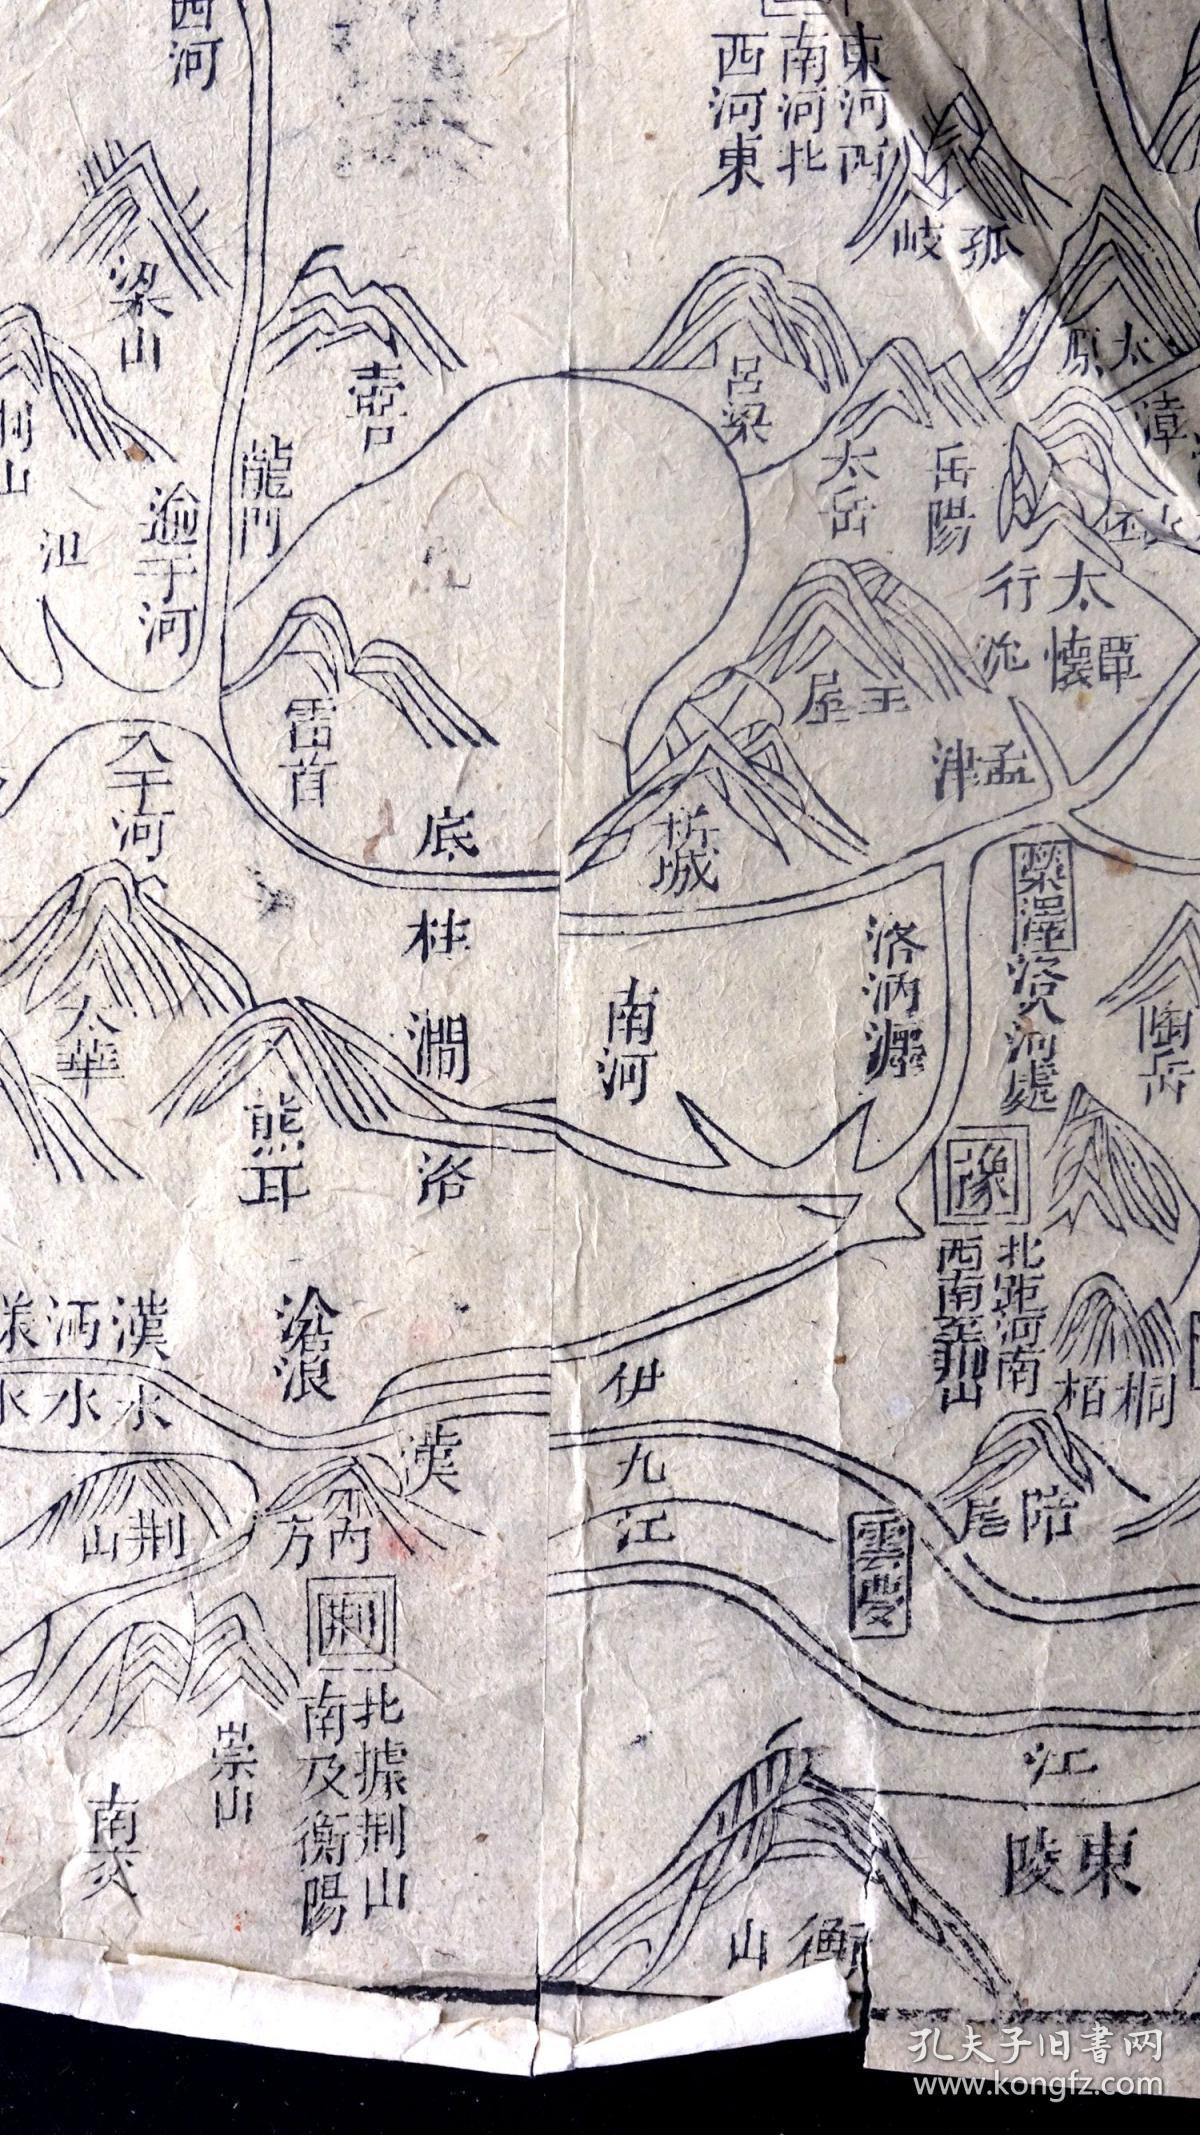 西河
東河西
南河北
西河東
孤岐
梁山
壺口
呂梁
太原
荆山
太岳
岳陽
漳
龍門
逾于河
沮
太行
覃懷
沇
王屋
孟津
雷首
析城
入于河
底柱
滎澤
洛入河處
洛汭瀍
南河
澗
太華
熊耳
洛
陶丘
豫
北距河南
西南至荆山
漢沔漾
水水水
滄浪
伊
桐栢
漢
九江
荆山
内方
陪尾
雲夢
荆
北據荆山
南及衡陽
崇山
南交
江
東陵
衡山
孔夫子旧书网
www.kongfz.com